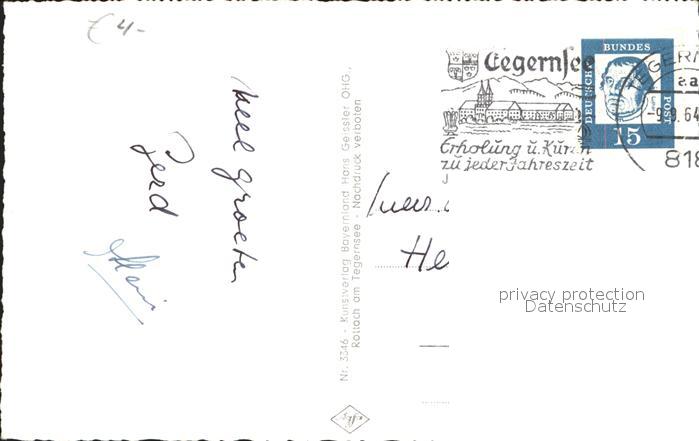 € 4-
veel groeten
Gerd
Nr. 3346 - Kunstverlag Bayernland Hans Geissler OHG.,
Rottach am Tegernsee - Nachdruck verboten
Tegernsee
Erholung u. Kuren
zu jeder Jahreszeit
DEUTSCHE
BUNDES
POST
15
TEGERN
-9.9.64
818
He
privacy protection
Datenschutz